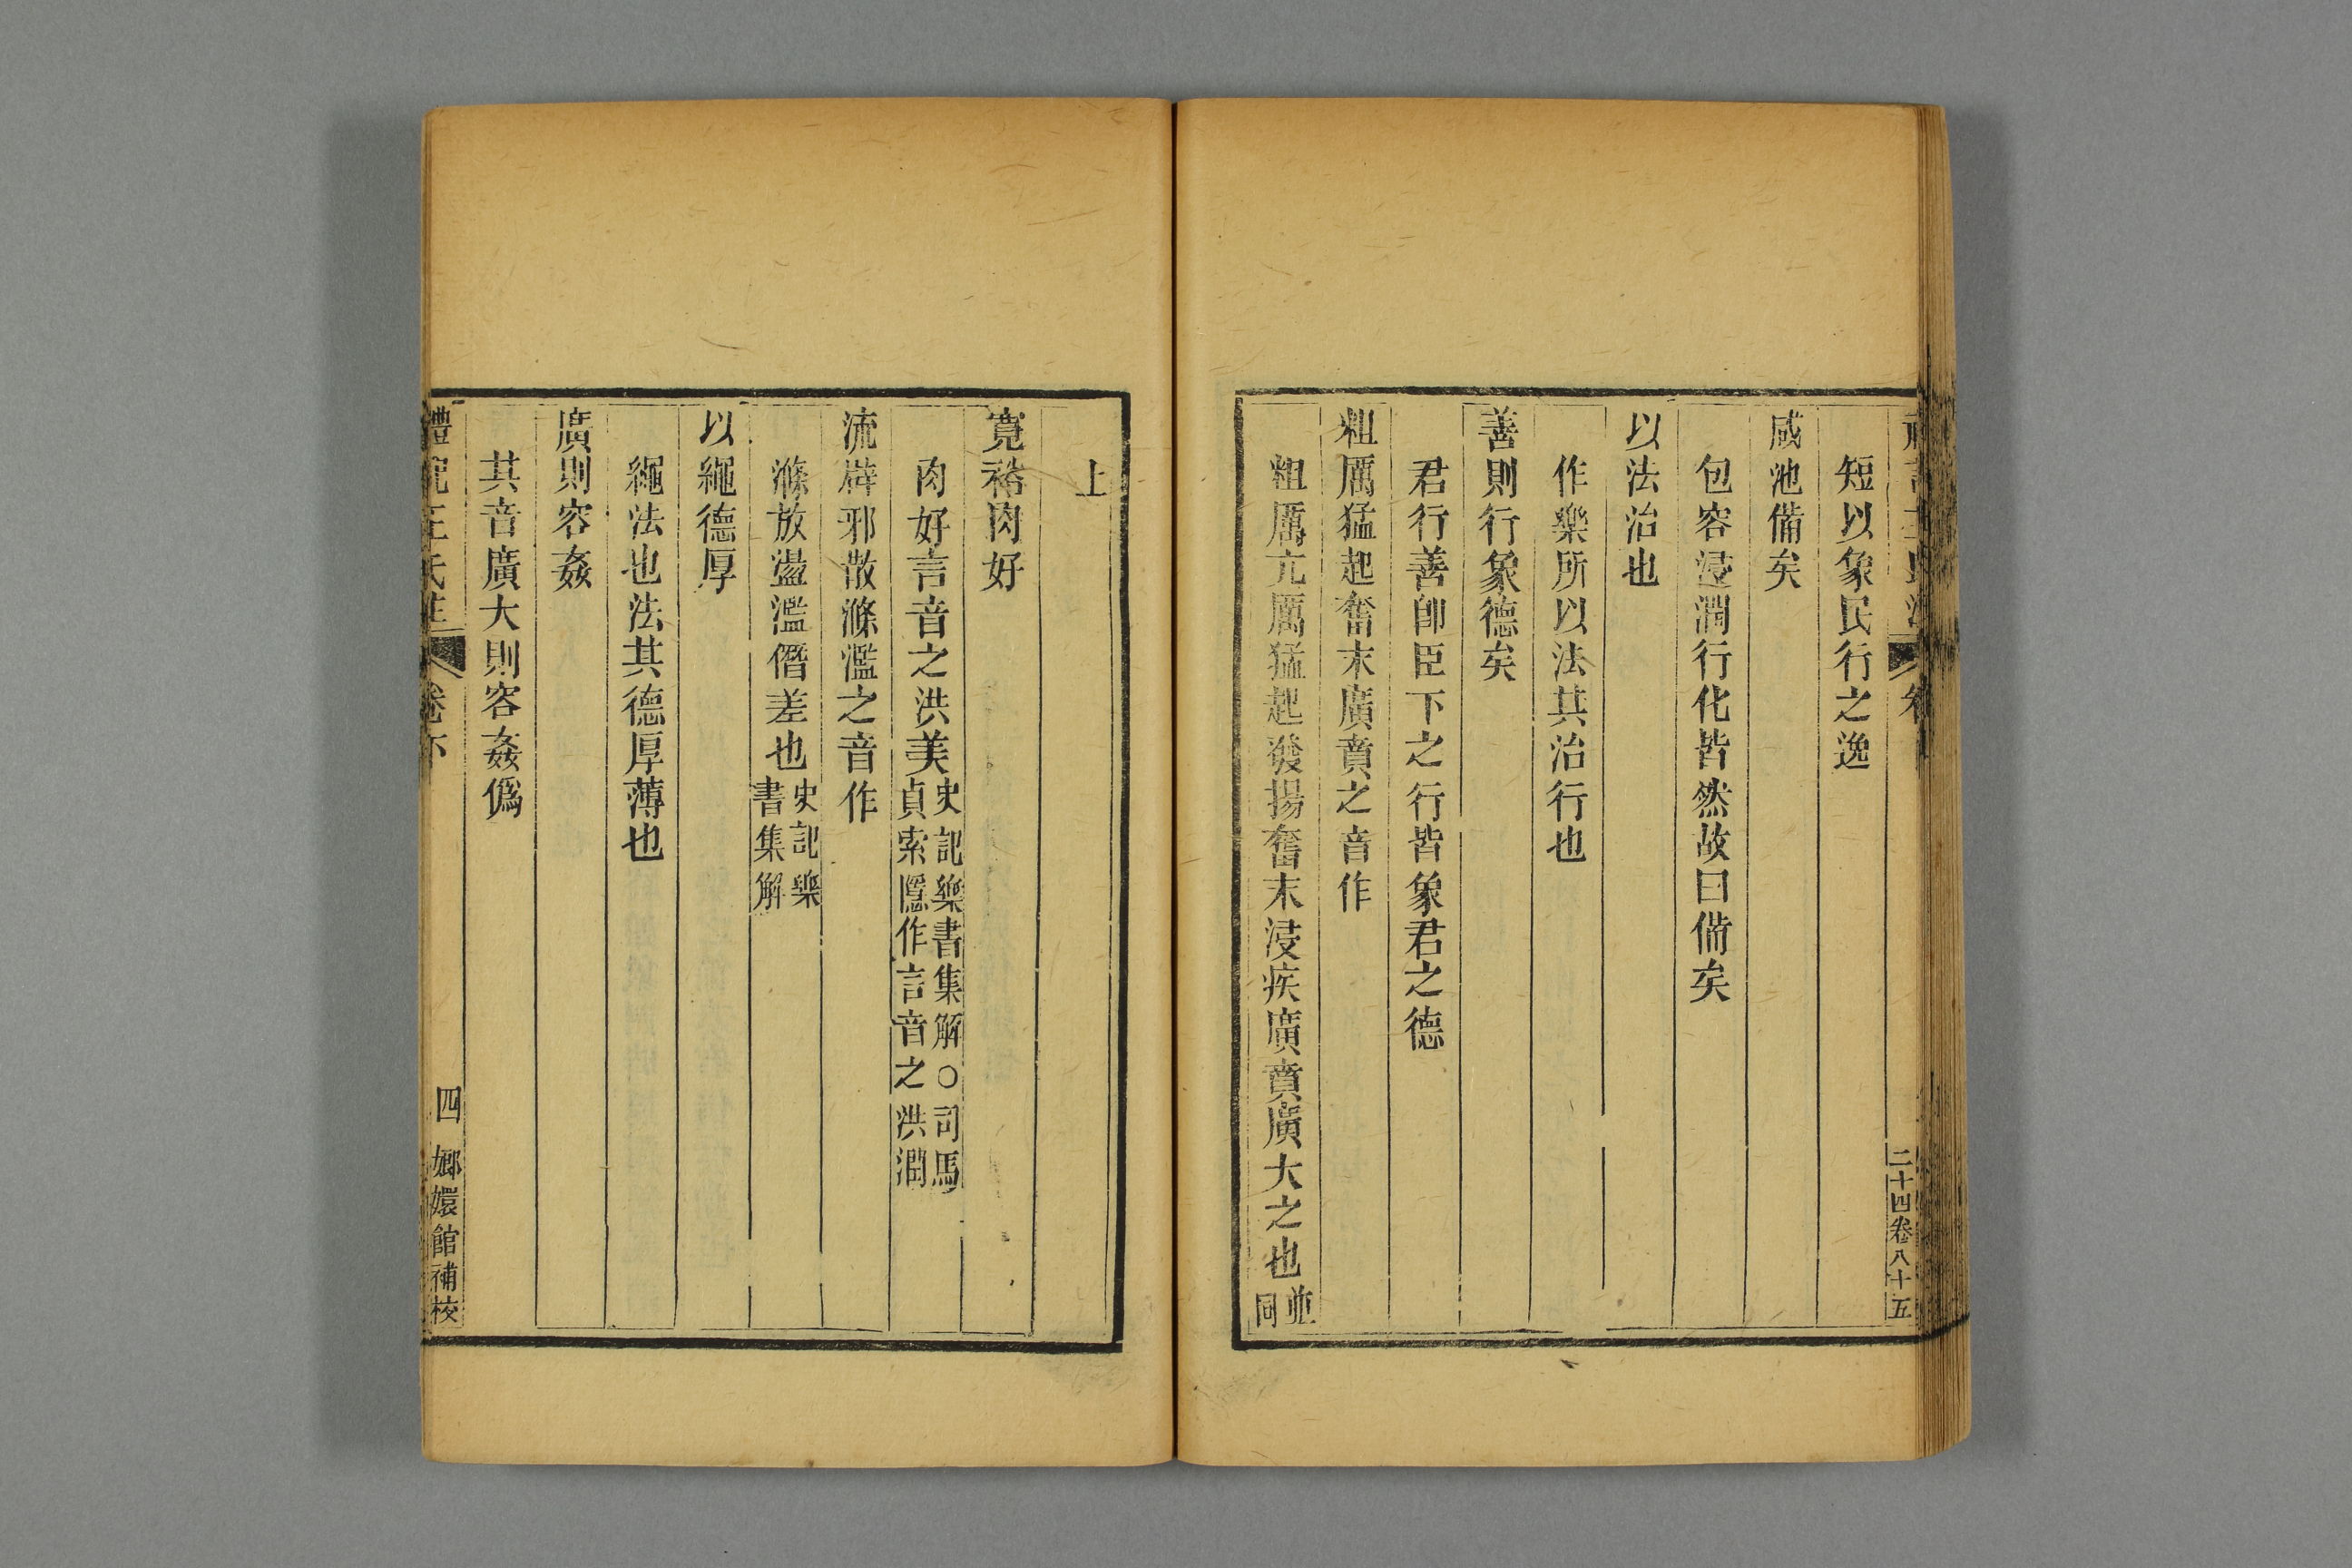 二十四卷八十五
短以象民行之逸
咸池備矣
包容浸潤行化皆然故曰備矣
以法治也
作樂所以法其治行也
善則行象德矣
君行善卽臣下之行皆象君之德
粗厲猛起奮末廣賁之音作
粗厲亢厲猛起發揚奮末浸疾廣賁廣大之也並同
上
寬裕肉好
肉好言音之洪美史記樂書集解○司馬貞索隱作言音之洪潤
流辟邪散滌濫之音作
滌放盪濫僭差也史記樂書集解
以繩德厚
繩法也法其德厚薄也
廣則容姦
其音廣大則容姦僞
四 嫏嬛館補校